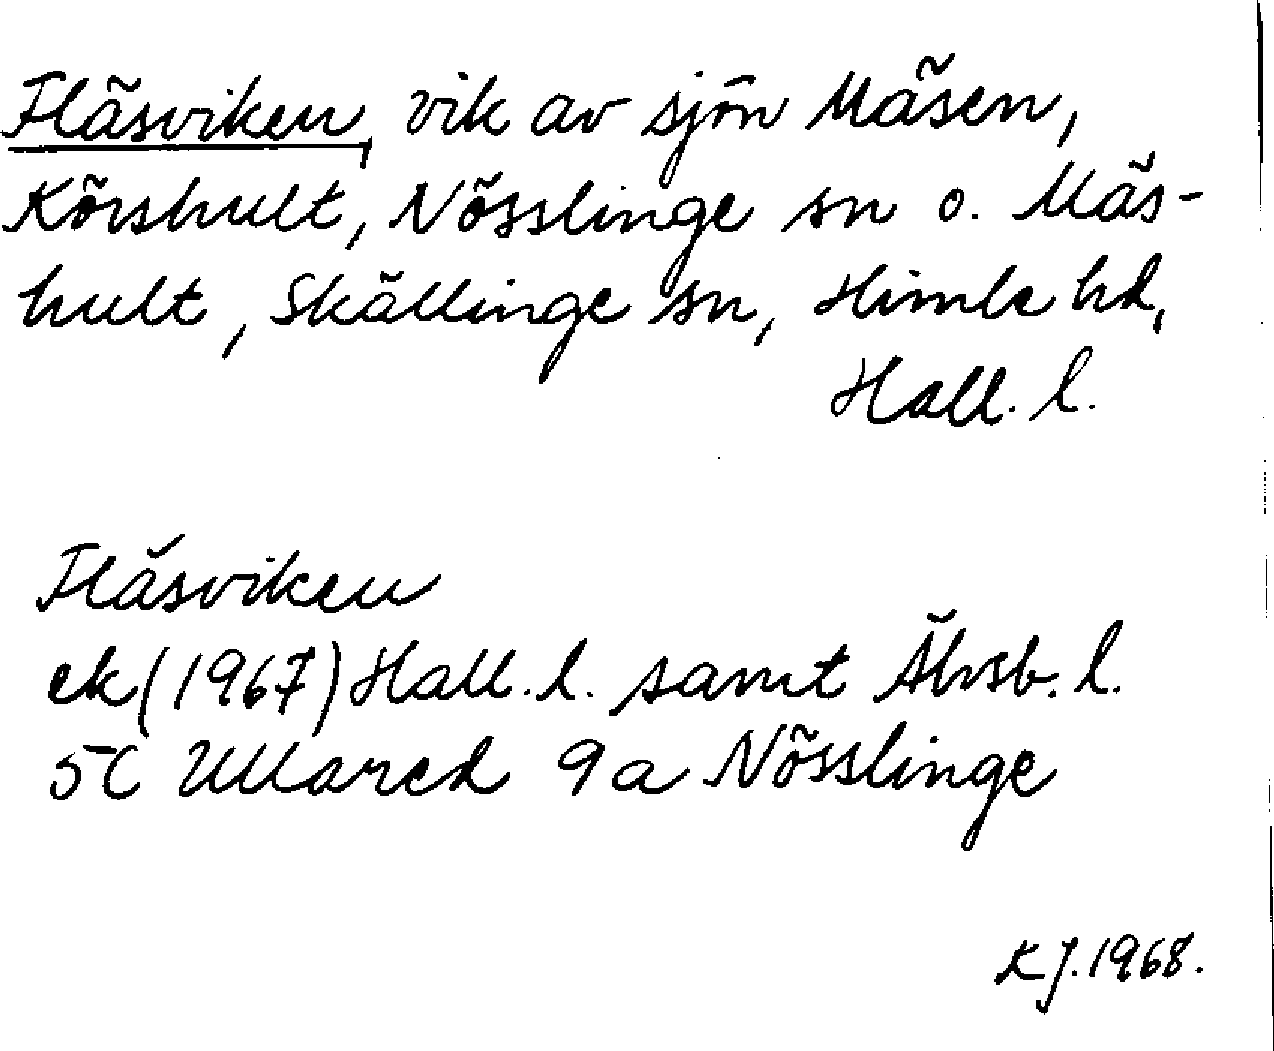 Fläsviken, vik av sjön Mäsen,
Körshult, Nösslinge sn o. Mäs-
hult, Skällinge sn, Himle hd,
Hall. l.
Fläsviken
ek (1967) Hall. l. samt Älvsb. l.
5C Ullared 9a Nösslinge
KJ. 1968.